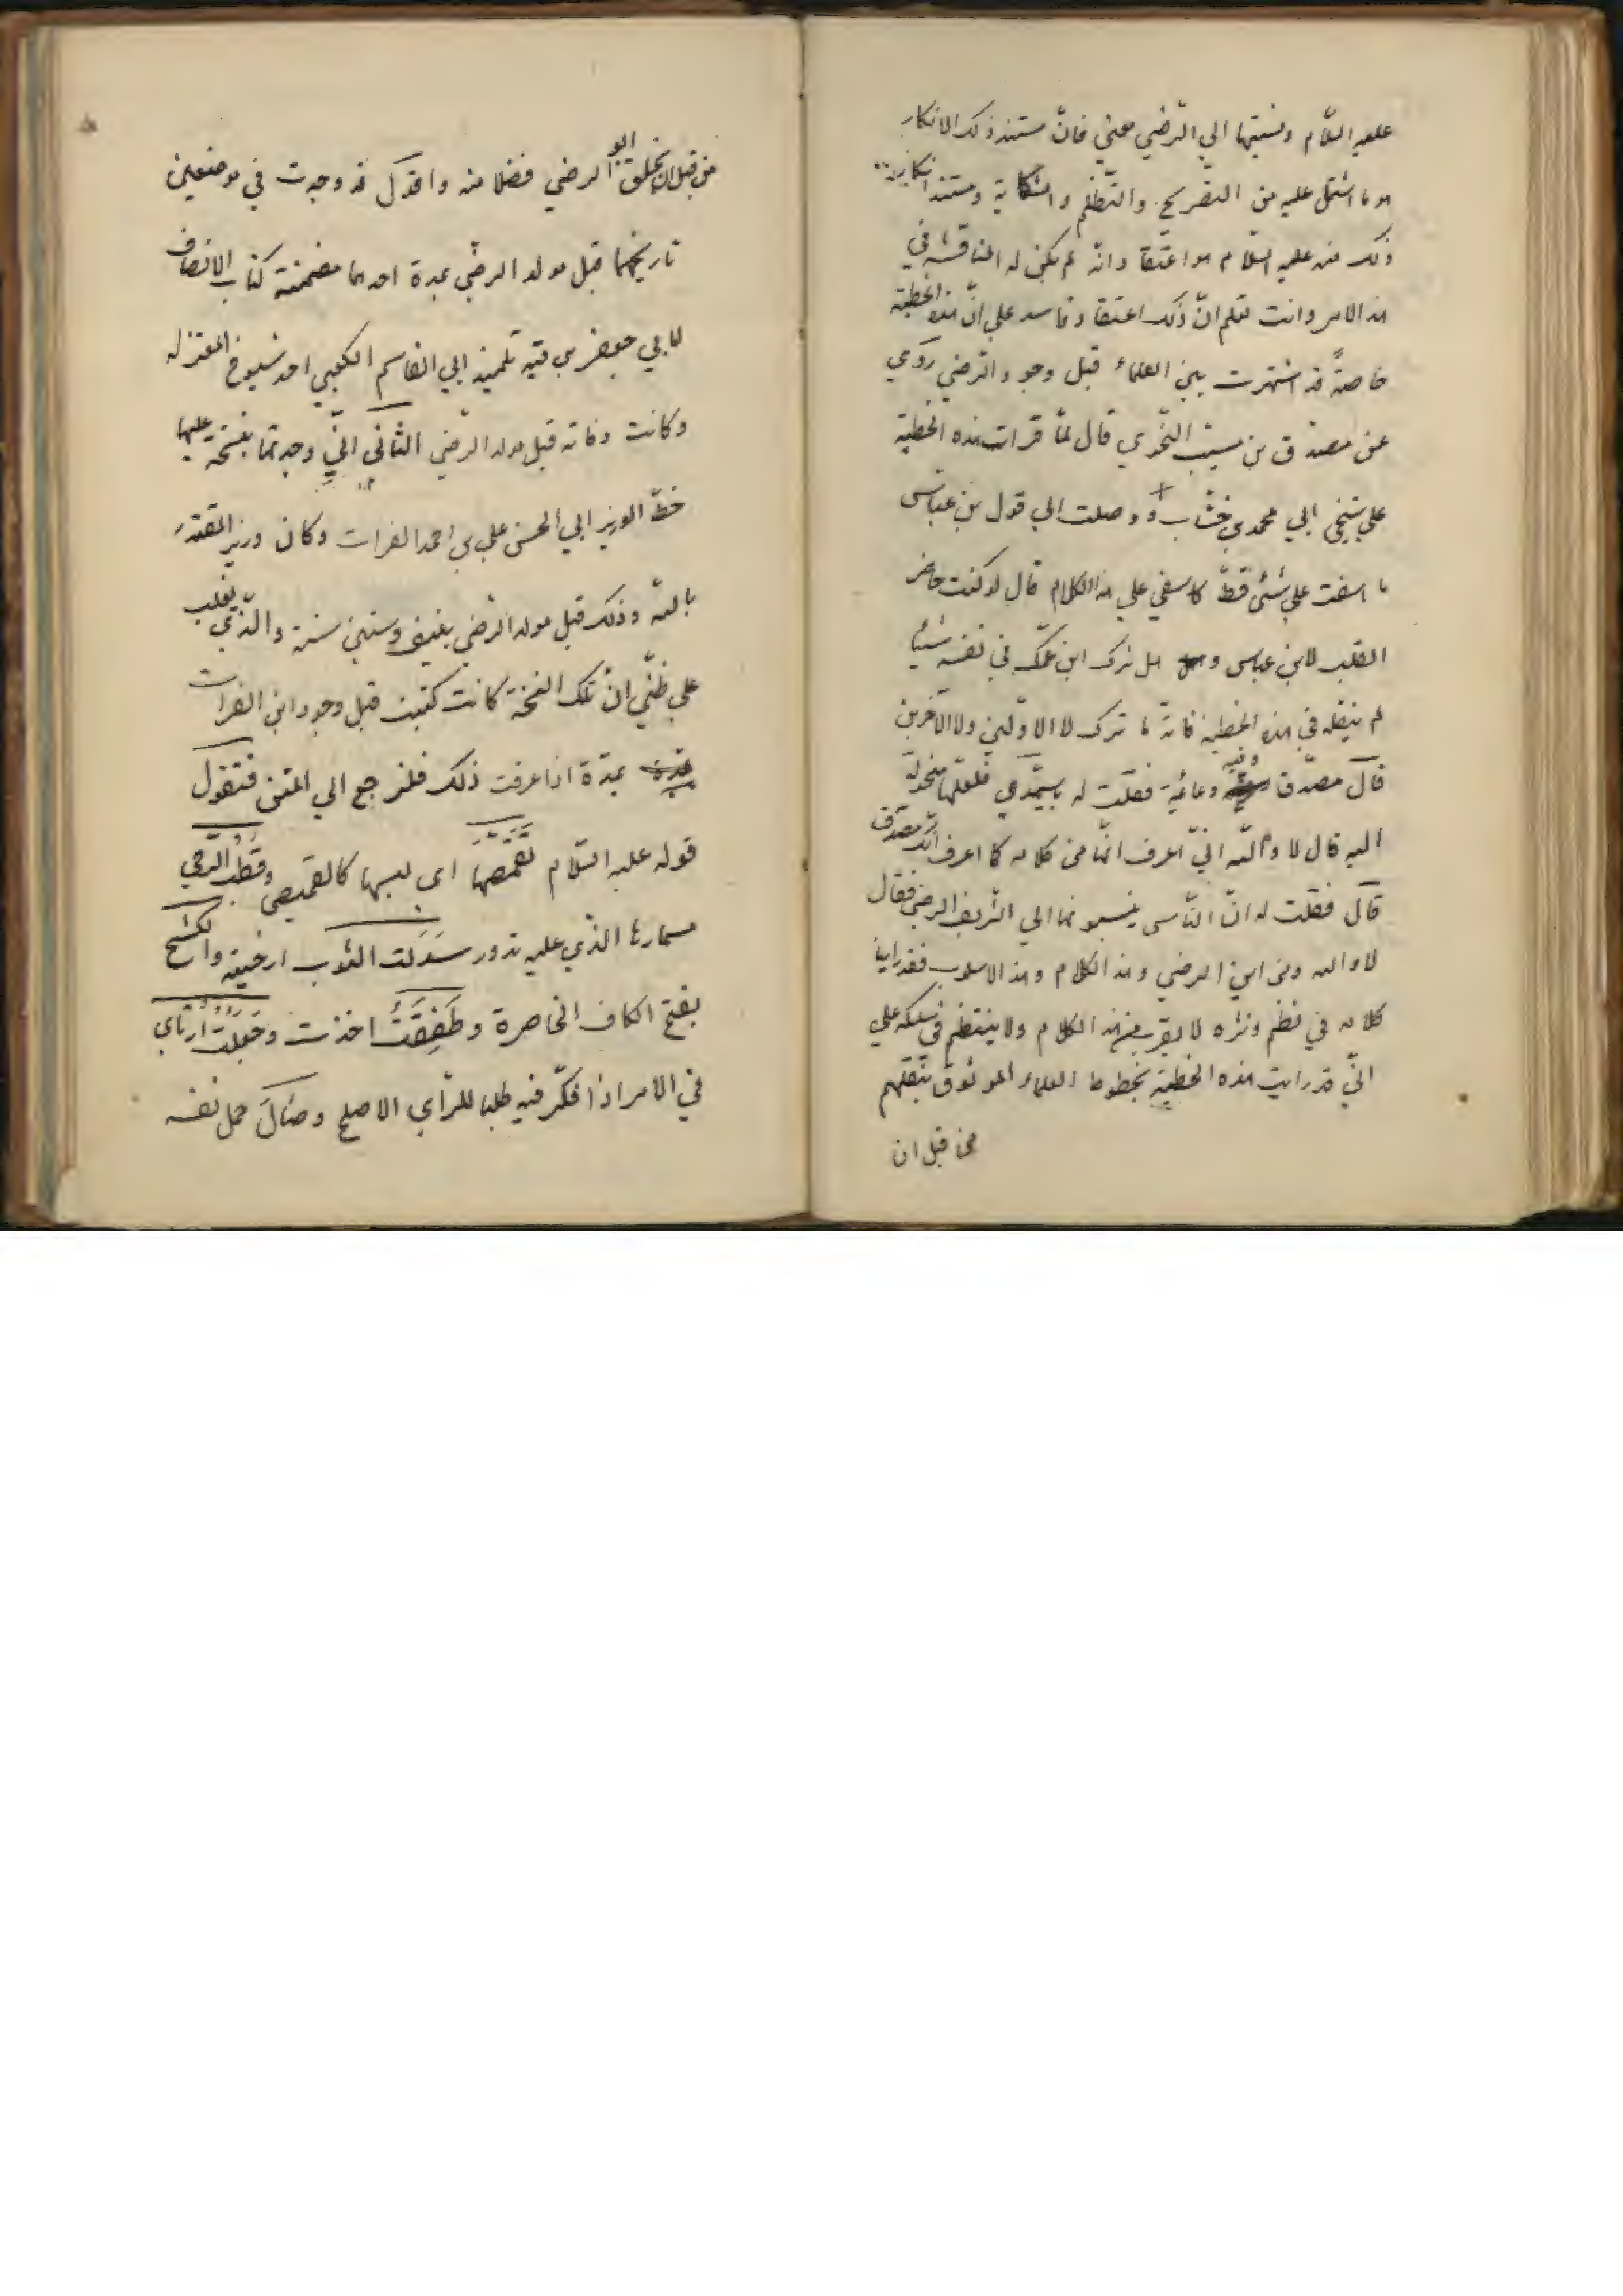 عليه السّلام ونسبتها الي الرّضي معني فانّ مستند ذلك الانكار
هو ما اشتمل عليه من التصريح والتّظلّم والشكاية ومستند انكار
ذلك منه عليه السّلام هو اعتقا د انّه لم يكن له المناقشة في
هذا الامر وانت تعلم انّ ذلك اعتقا د فاسد علي انّ هذه الخطبة
خاصةً قد اشتهرت بين العلماء قبل وجود الرّضي روي
عن مصدّق بن مسيّب النّحوي قال لمّا قرات هذه الخطبة
علي شيخي ابي محمد بن خشّاب و وصلت الي قول بن عبّاس
ما اسفت علي شئ قطّ كاسفي علي هذا الكلام قال لو كنت حاضر
القلب لابن عباس وهل ترك ابن عمّك في نفسه شيئا
لم ينقله في هذه الخطبة فانّه ما ترك لا الاوّلين ولا الآخرين
قال مصدّق وفيه دعابة فقلت له يا سيّدي فلعلّها منحولة
اليه قال لا والله انّي اعرف انّها من كلامه كما اعرف انّك مصدّق
قال فقلت له انّ النّاس ينسبونها الي الشّريف الرضي فقال
لا والله ومن اين الرضي وهذ الكلام وهذ الاسلوب فقد راينا
كلامه في نظم ونثره لا يقرب من هذ الكلام ولا ينتظم في سلكه علي
انّي قد رايت هذه الخطبة بخطوط العلماء الموثوق بنقلهم
من قبل ان
من قبل ان يخلق ابو الرضي فضلا منه واقول قد وجدت في موضعين
تاريخهما قبل مولد الرضي بمدة احدهما مضمنة كتاب الانصاف
لابي جعفر بن قبة تلميذ ابي القاسم الكعبي احد شيوخ المعتزله
وكانت وفاته قبل مولد الرّضي الثّاني انّي وجدتها بنسخة عليها
خطّ الوزير ابي الحسن علي بن احمد الفرات وكان وزير المقتدر
بالله وذلك قبل مولد الرّضي بنيف وستين سنة والّذي يغلب
علي ظنّي انّ تلك النسخة كانت كتبت قبل وجود ابن الفرات
بمدّة اذا عرفت ذلك فلنرجع الي المتن فنقول
قوله عليه السّلام تقمّصها اي لبسها كالقميص وقطب الرّحي
مسمارها الذّي عليه تدور سدلت الثّوب ارخيته والكشح
بفتح الكاف الخاصرة وطفِقتُ اخذت وجعلت ارتاي
في الامر اذا فكّر فيه طلبا للرّاي الاصلح وصَالَ حمل نفسه